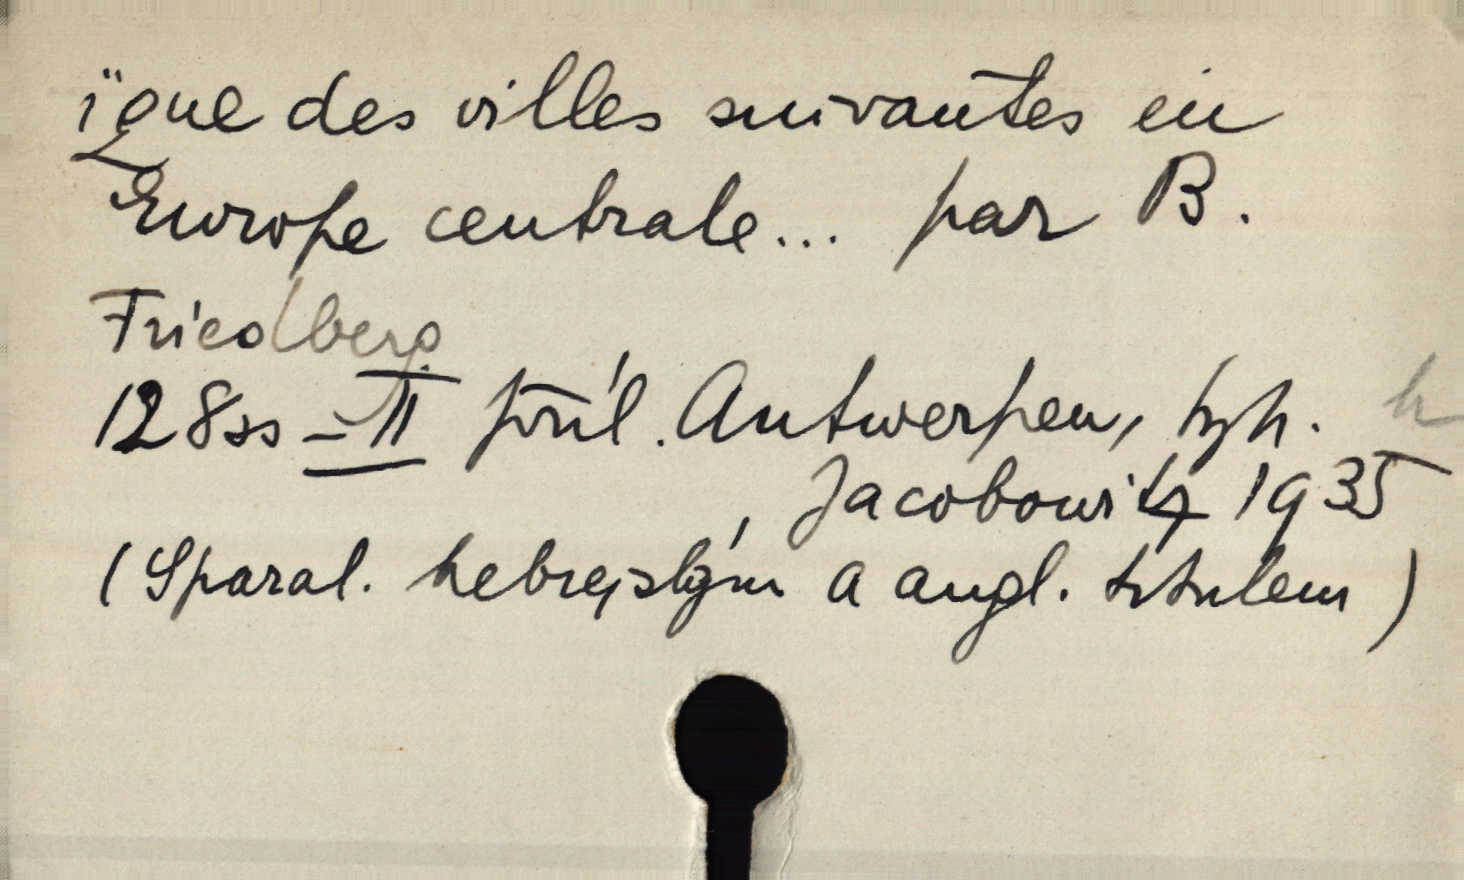 ïque des villes suivantes en
Europe centrale... par B.
Friedberg.
128 ss – II příl. Antwerpen, typ.
Jacobowitz 1935
(S paral. hebrejským a angl. titulem)